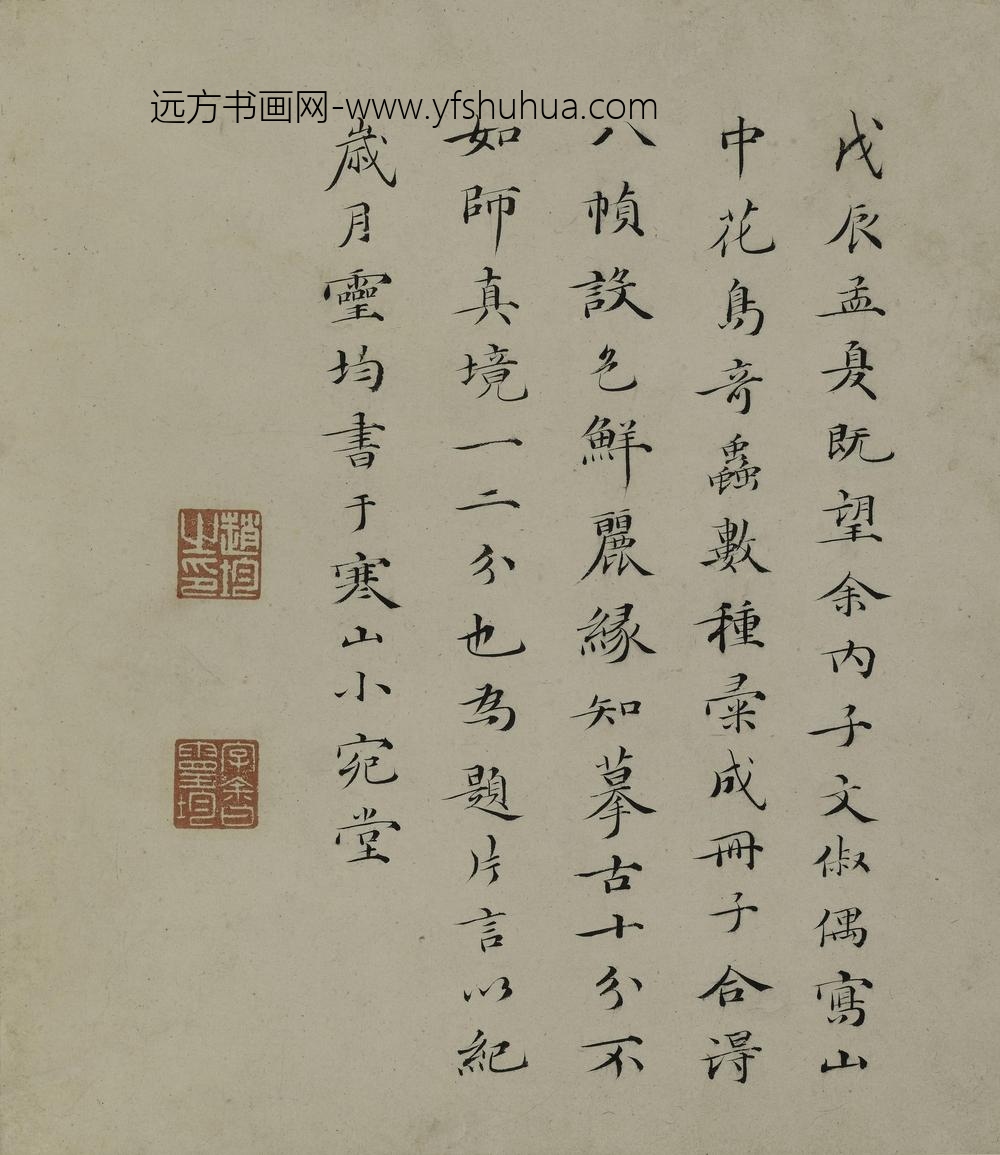 远方书画网-www.yfshuhua.com
戊辰孟夏既望余内子文俶偶寫山
中花鳥奇蟲數種彙成冊子合得
八幀設色鮮麗緣知摹古十分不
如師真境一二分也為題片言以紀
歲月靈均書于寒山小宛堂
趙均之印
字余曰靈均